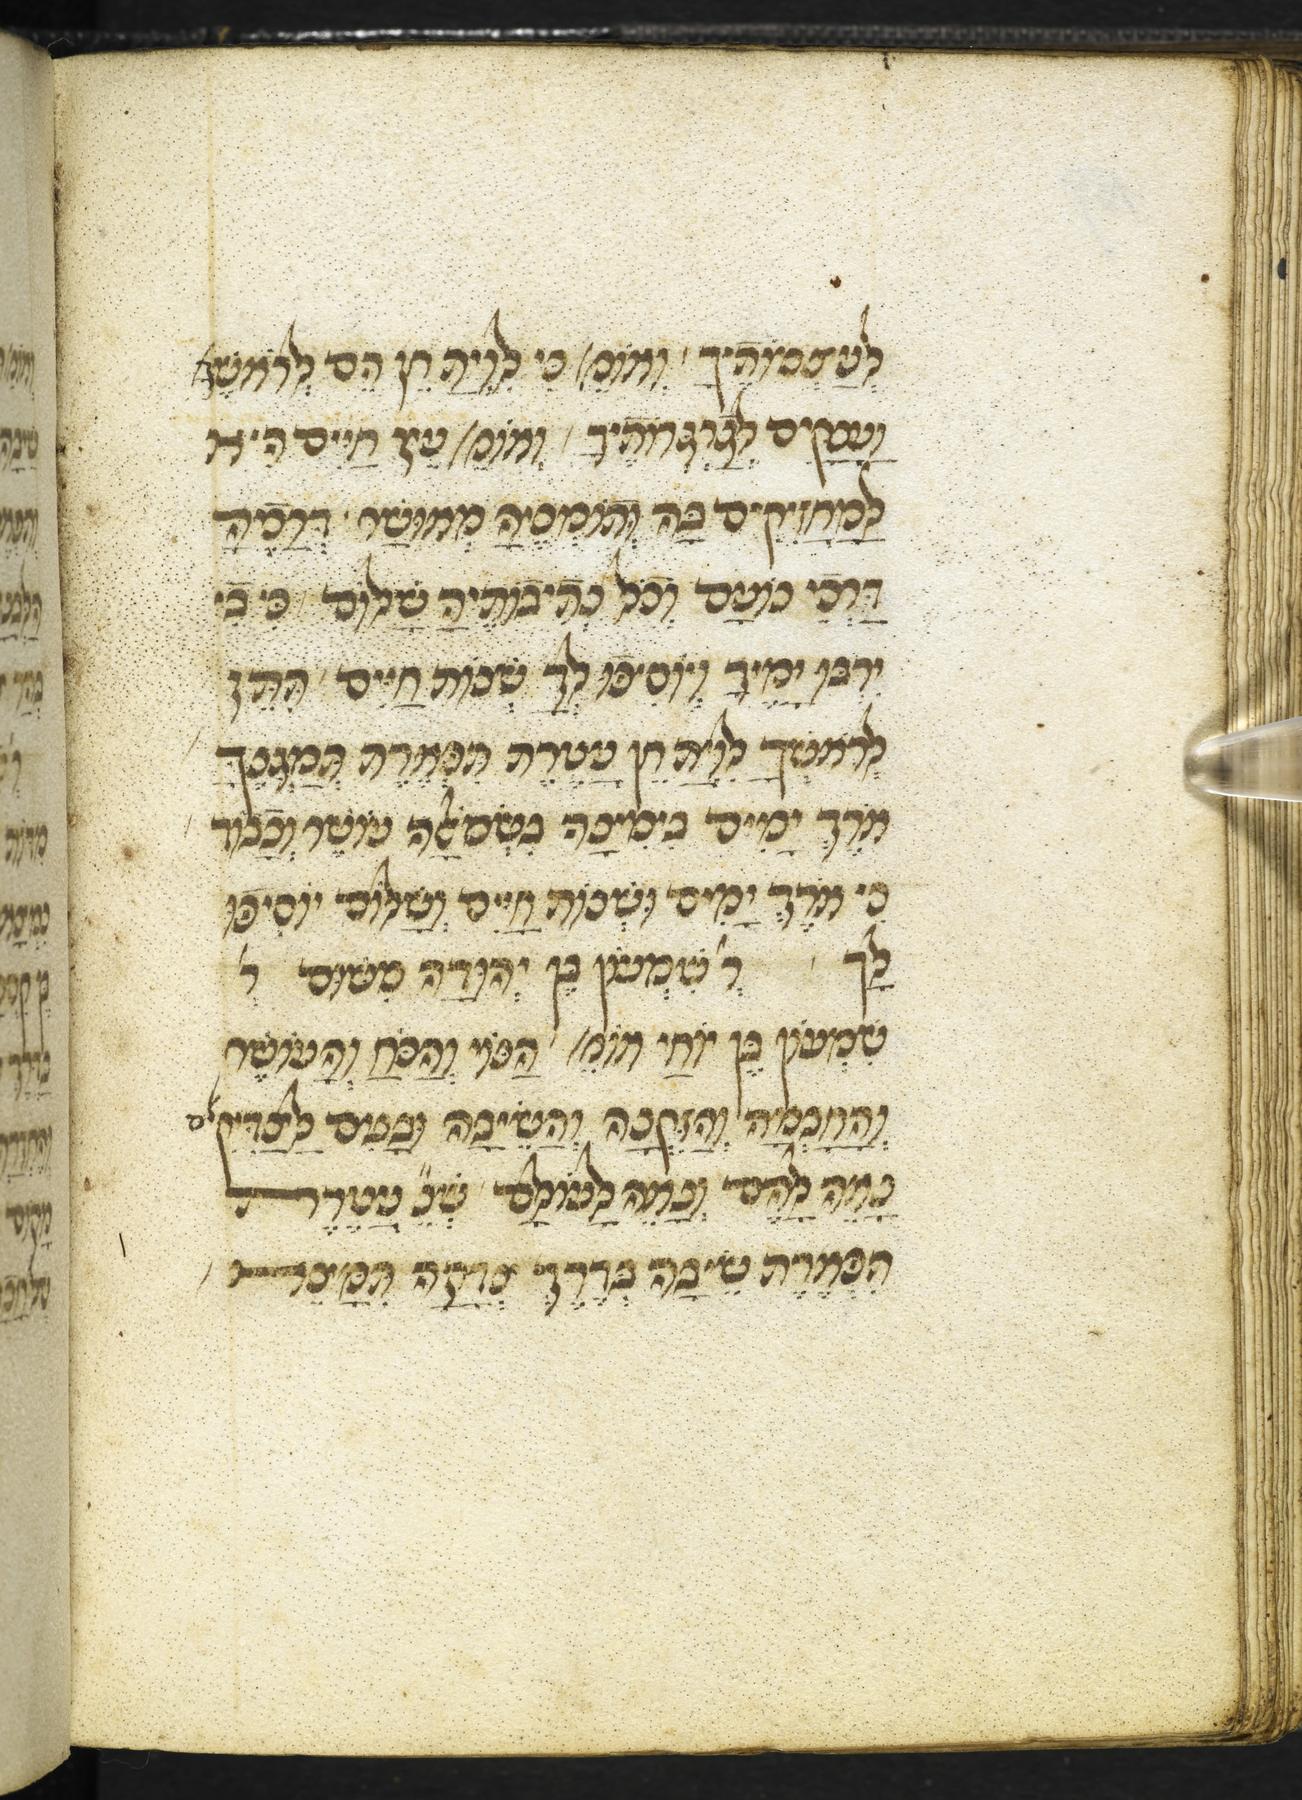 לְעַצְמוֹתֶיךָ וְאוֹמֵ/ כִּי לִוְיַת חֵן הֵם לְרֹאשֶׁ
וַעֲנָקִים לְגַרְגְּרוֹתֶיךָ / וְאוֹמֵ/ עֵץ חַיִּים הִיא
לַמַּחֲזִיקִים בָּהּ וְתוֹמְכֶיהָ מְאוּשָּׁר דְּרָכֶיהָ
דַּרְכֵי נוֹעַם וְכָל נְתִיבוֹתֶיהָ שָׁלוֹם כִּי בִי
יִרְבּוּ יָמֶיךָ וְיוֹסִיפוּ לְךָ שְׁנוֹת חַיִּים תִּתֵּן
לְרֹאשְׁךָ לִוְיַת חֵן עֲטֶרֶת תִּפְאֶרֶת תְּמַגְּנֶךָּ /
אֹרֶךְ יָמִים בִּימִינָהּ בִּשְׂמֹאלָהּ עוֹשֶׁר וְכָבוֹד /
כִּי אֹרֶךְ יָמִים וּשְׁנוֹת חַיִּים וְשָׁלוֹם יוֹסִיפוּ
לָךְ / ר' שִׁמְעוֹן בֶּן יְהוּדָה מִשּׁוּם ר'
שִׁמְעוֹן בֶּן יוֹחַי אוֹמֵ/ הַנּוֹי וְהַכֹּחַ וְהָעוֹשֶׁר
וְהַחָכְמָה וְהַזִּקְנָה וְהַשֵּׂיבָה וּבָנִים לַצַּדִּיקִים
נָאֶה לָהֶם וְנָאֶה לָעוֹלָם שֶׁנֶּ' עֲטֶרֶת
תִּפְאֶרֶת שֵׂיבָה בְּדֶרֶךְ צְדָקָה תִּמָּצֵא /